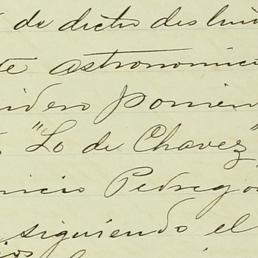 de dicho deslin
te astronomico
sidero ponien
"Lo de Chavez"
nicio Pedrego
siguiendo el